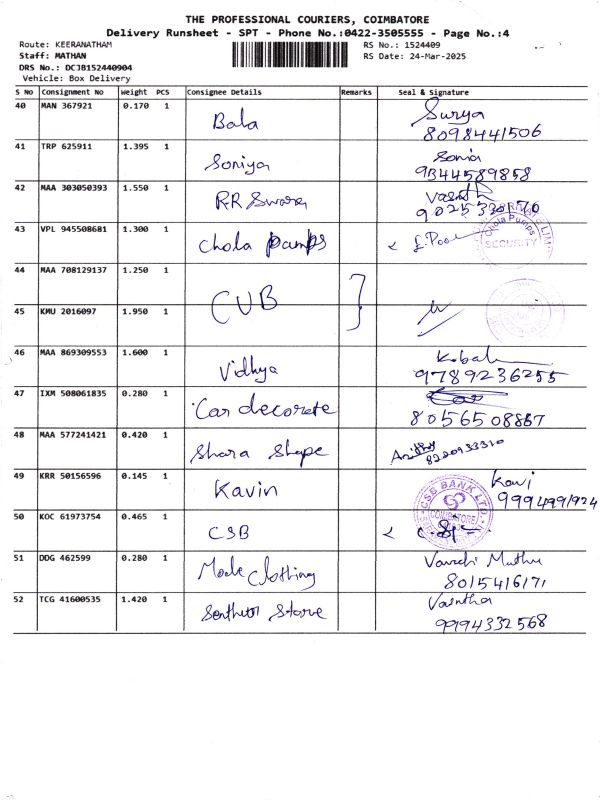 THE PROFESSIONAL COURIERS, COIMBATORE
Delivery Runsheet - SPT - Phone No.:0422-3505555 - Page No.:4
Route: KEERANATHAM
RS No.: 1524409
Staff: MATHAN
RS Date: 24-Mar-2025
DRS No.: DCJB152440904
Vehicle: Box Delivery
S No Consignment No Weight PCS Consignee Details Remarks Seal & Signature
40 MAN 367921 0.170 1 Bala Surya
8098441506
41 TRP 625911 1.395 1 Soniya Sonia
9344589858
42 MAA 303050393 1.550 1 RR Swara
43 VPL 945508681 1.300 1 Chola Pumps
Chola Pumps
SECURITY
44 MAA 708129137 1.250 1 CUB
45 KMU 2016097 1.950 1
46 MAA 869309553 1.600 1 Vidhya
9789236255
47 IXM 508061835 0.280 1 Car decorate Car
48 MAA 577241421 0.420 1 Shara Shape
8220933310
49 KRR 50156596 0.145 1 Kavin Kavi
CSB BANK LTD.
COIMBATORE
50 KOC 61973754 0.465 1 CSB
51 DDG 462599 0.280 1 Mode Clothing
8015416171
52 TCG 41600535 1.420 1 Store
9994332568